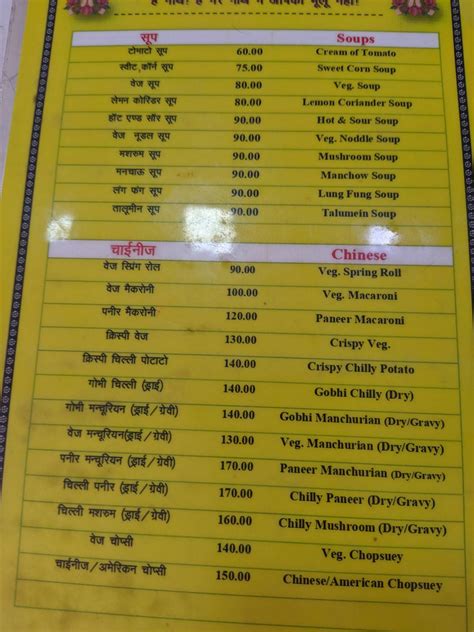 सूप Soups
टोमाटो सूप 60.00 Cream of Tomato
स्वीट कॉर्न सूप 75.00 Sweet Corn Soup
वेज सूप 80.00 Veg. Soup
लेमन कोरिडर सूप 80.00 Lemon Coriander Soup
हॉट एण्ड सॉर सूप 90.00 Hot & Sour Soup
वेज नूडल सूप 90.00 Veg. Noddle Soup
मशरुम सूप 90.00 Mushroom Soup
मनचाऊ सूप 90.00 Manchow Soup
लंग फंग सूप 90.00 Lung Fung Soup
तालूमीन सूप 90.00 Talumein Soup
चाईनीज Chinese
वेज स्प्रिंग रोल 90.00 Veg. Spring Roll
वेज मैकरोनी 100.00 Veg. Macaroni
पनीर मैकरोनी 120.00 Paneer Macaroni
क्रिस्पी वेज 130.00 Crispy Veg.
क्रिस्पी चिल्ली पोटाटो 140.00 Crispy Chilly Potato
गोभी चिल्ली (ड्राई) 140.00 Gobhi Chilly (Dry)
गोभी मन्चूरियन (ड्राई/ग्रेवी) 140.00 Gobhi Manchurian (Dry/Gravy)
वेज मन्चूरियन(ड्राई/ग्रेवी) 130.00 Veg. Manchurian (Dry/Gravy)
पनीर मन्चूरियन (ड्राई/ग्रेवी) 170.00 Paneer Manchurian (Dry/Gravy)
चिल्ली पनीर (ड्राई/ग्रेवी) 170.00 Chilly Paneer (Dry/Gravy)
चिल्ली मशरुम (ड्राई/ग्रेवी) 160.00 Chilly Mushroom (Dry/Gravy)
वेज चोप्सी 140.00 Veg. Chopsuey
चाईनीज/अमेरिकन चोप्सी 150.00 Chinese/American Chopsuey